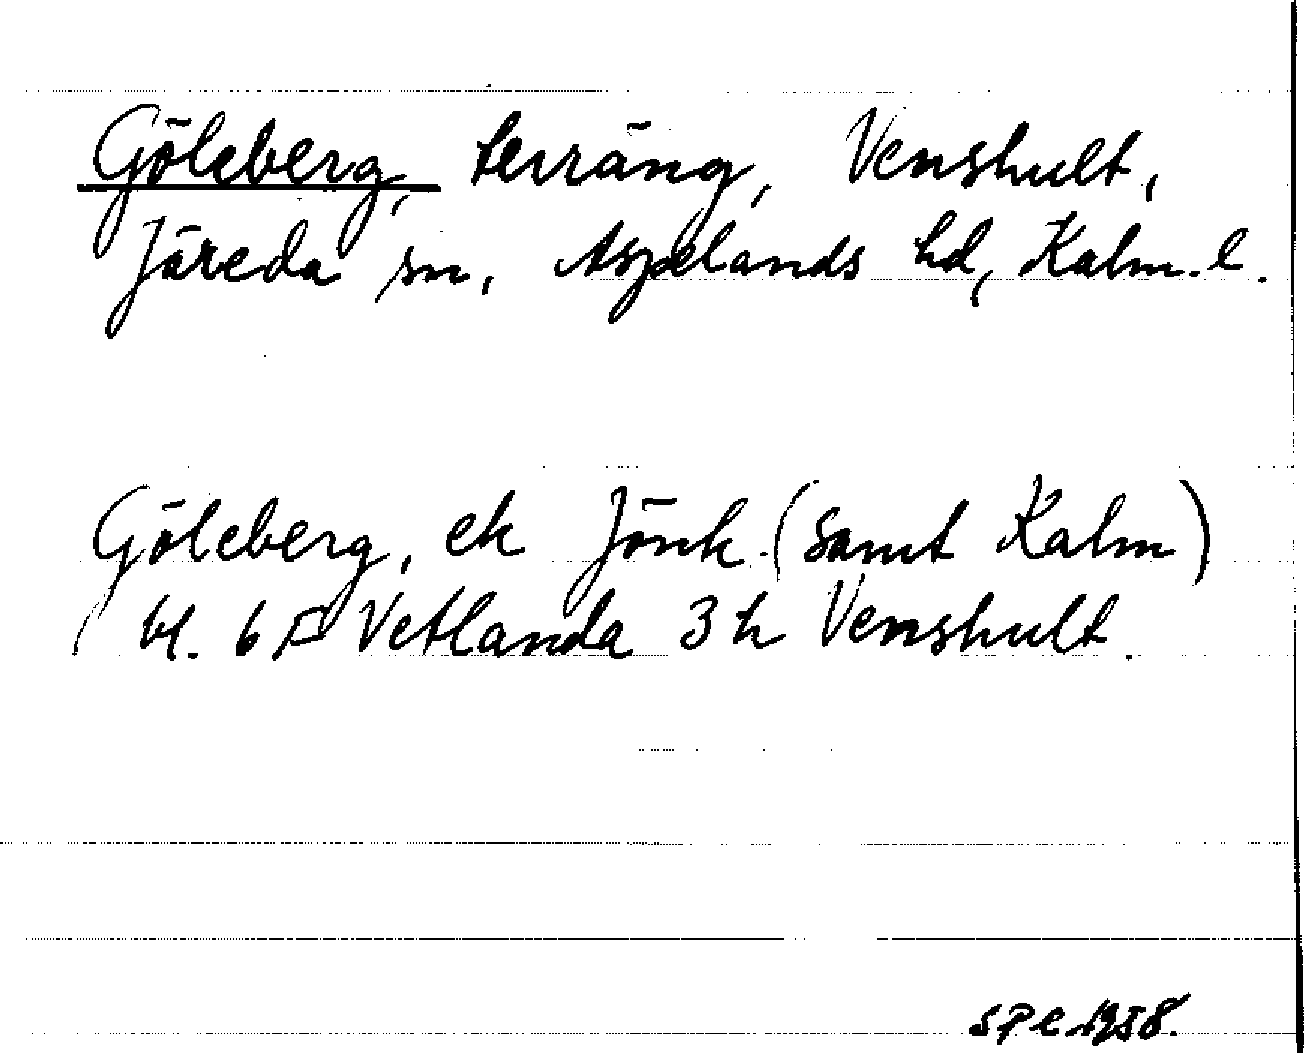 Göleberg, terräng, Venshult,
Järeda sn, Aspelands hd, Kalm. l.
Göleberg, ek Jönk. (samt Kalm)
bl. 6 F Vetlanda 3 h Venshult.
SPC 1958.